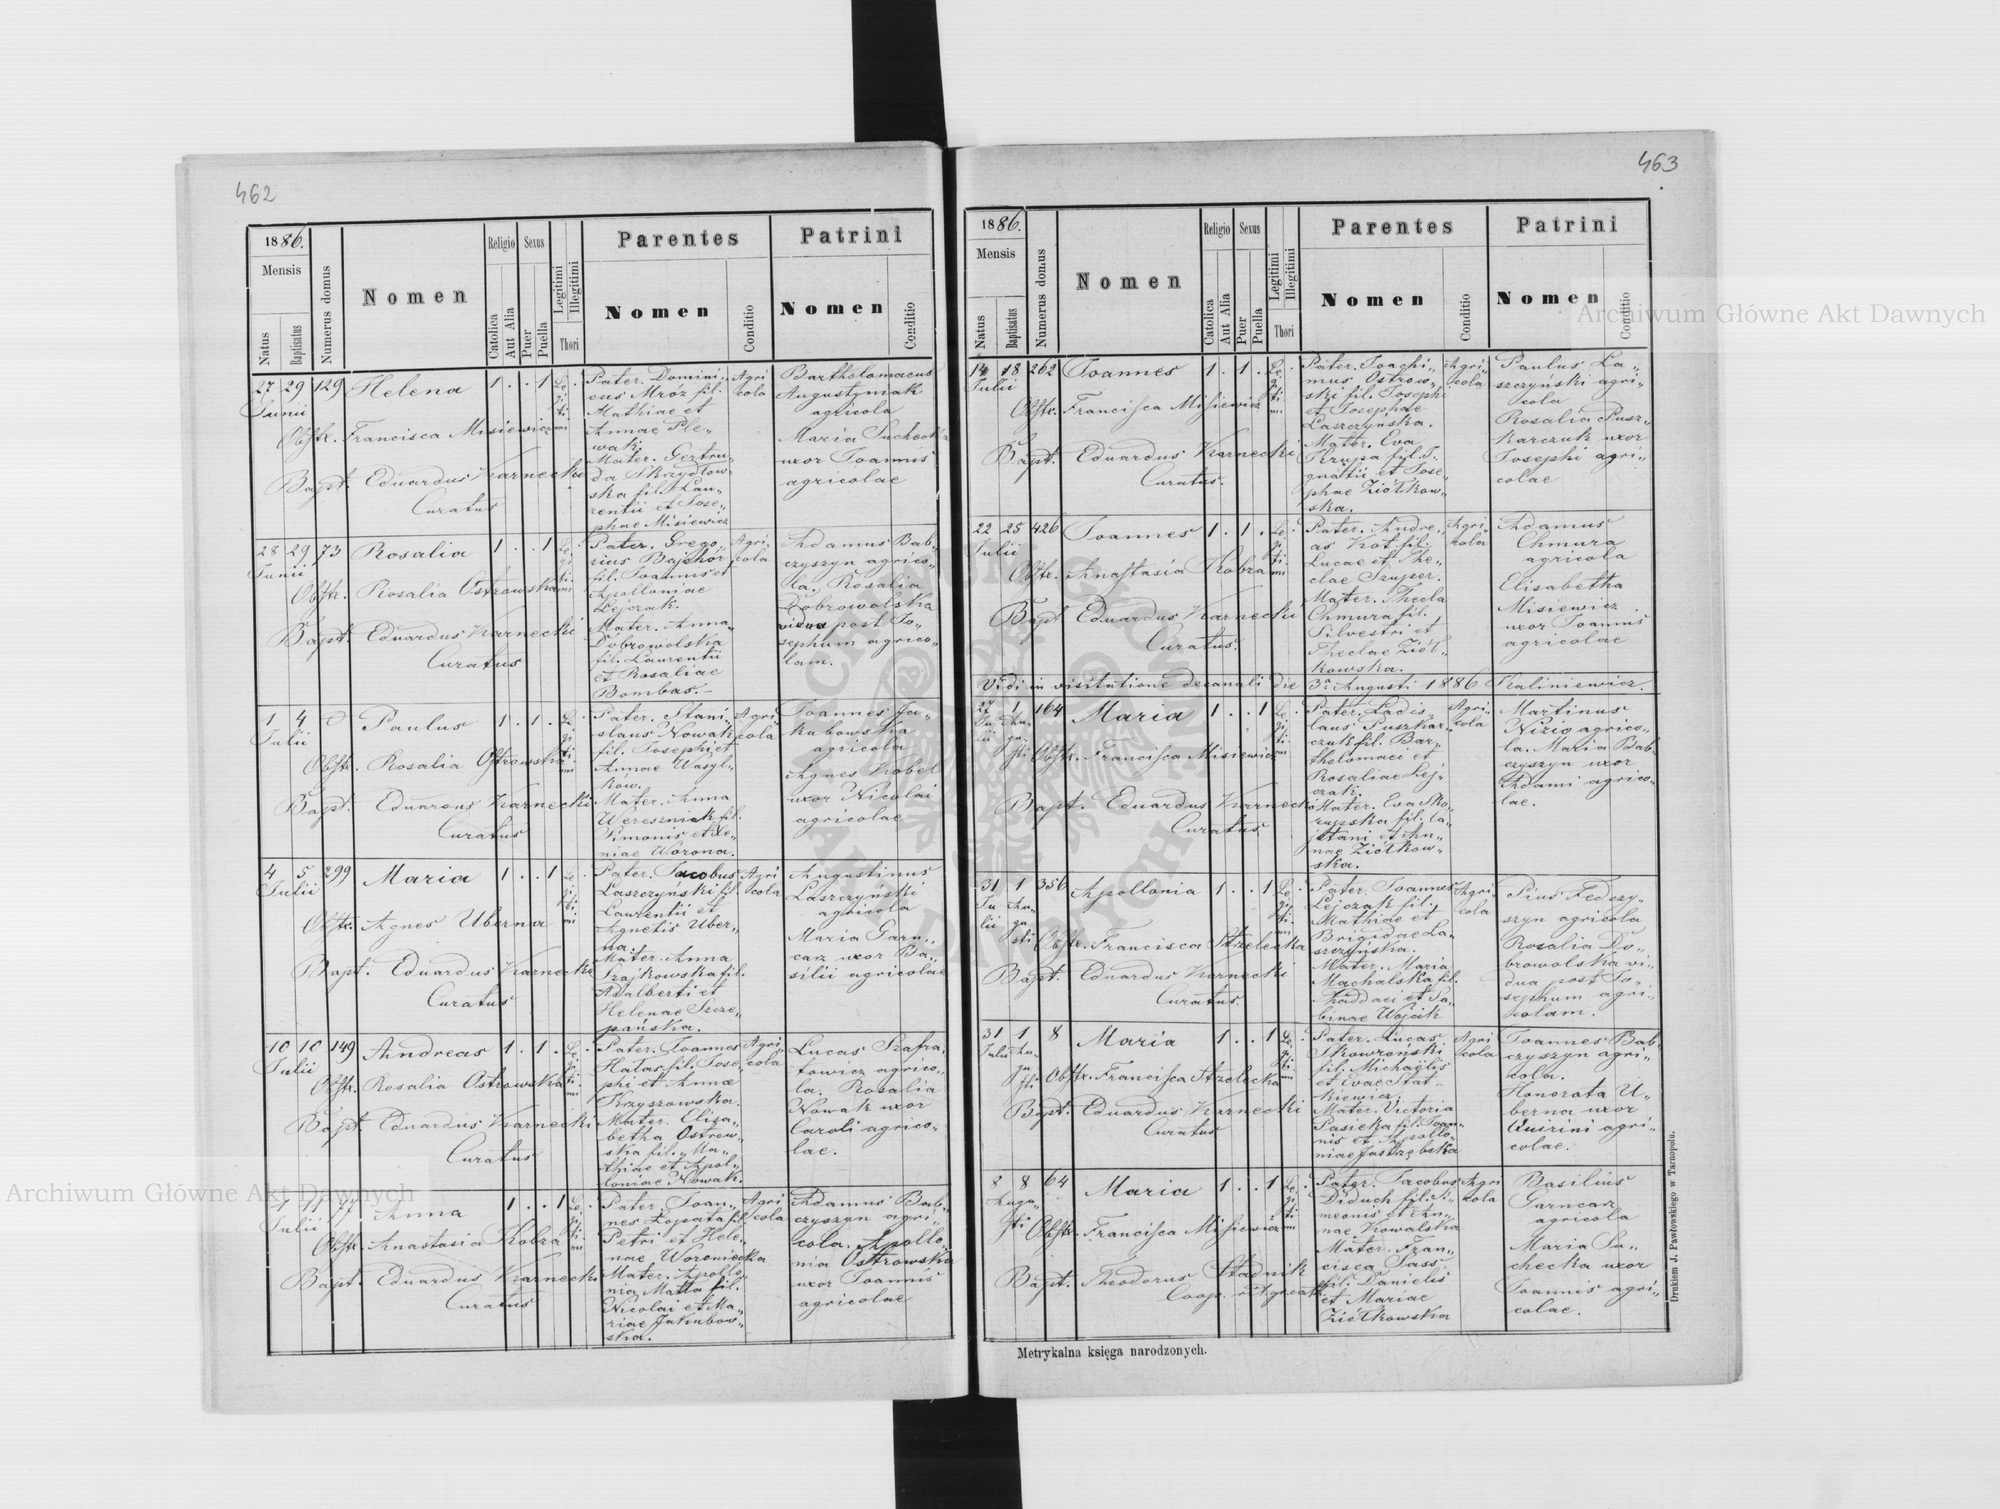 462
1886.
Mensis
Natus
Baptisatus
Numerus domus
Nomen
Religio
Catolica
Aut Alia
Sexus
Puer
Puella
Legitimi
Illegitimi
Thori
Parentes
Nomen
Conditio
Patrini
Nomen
Conditio
27 29 129 Helena 1 . . 1 Le
Junii
gi
ti
mi
Obstr. Francisca Misiewicz
Bapt. Eduardus Karnecki
Curatus
Pater. Domini„
cus Mróz fil.
Mathiae et
Annae Ple„
waki
Mater. Gertru„
da Skrzydłow„
ska fil. Lau„
rentii et Jose„
phae Misiewicz
Agri
cola
Bartholomaeus
Augustyniak
agricola
Maria Suchecka
uxor Joannis
agricolae
28 29 73 Rosalia 1 . . 1 Le
Junii
gi
ti
mi
Obstr. Rosalia Ostrowska
Bapt. Eduardus Karnecki
Curatus
Pater. Grego„
rius Bajchór
fil. Joannis et
Apolloniae
Lejczak.
Mater. Anna
Dobrowolska
fil. Laurentii
et Rosaliae
Bombas.
Agri
cola
Adamus Bab„
czyszyn agrico„
la. Rosalia
Dobrowolska
vidua post Jo„
sephum agrico„
lam.
1 4 Paulus 1 . 1 . Le
Julii
gi
ti
mi
Obstr. Rosalia Ostrowska
Bapt. Eduardus Karnecki
Curatus
Pater. Stani„
slaus Nowak
fil. Josephi et
Annae Wasyl„
ków.
Mater. Anna
Wereszniak fil.
Simonis et Xe„
niae Worona.
Agri
cola
Joannes Ja„
kubowska
agricola
Agnes Kobel
uxor Nicolai
agricolae
4 5 299 Maria 1 . . 1 Le
Julii
gi
ti
mi
Obstr. Agnes Uberna
Bapt. Eduardus Karnecki
Curatus
Pater. Jacobus
Laszczyński fil.
Laurentii et
Agnetis Uber„
na.
Mater. Anna
Szajkowska fil.
Adalberti et
Helenae Szcze„
pańska.
Agri
cola
Augustinus
Laszczyński
agricola
Maria Garn„
carz uxor Ba„
silii agricolae
10 10 149 Andreas 1 . 1 . Le
Julii
gi
ti
mi
Obstr. Rosalia Ostrowska
Bapt. Eduardus Karnecki
Curatus
Pater. Joannes
Hałas fil. Jose„
phi et Annae
Krzyszowska.
Mater. Elisa„
betha Ostrow„
ska fil. Ma„
thiae et Apol„
loniae Nowak.
Agri
cola
Lucas Szafra„
towicz agrico„
la. Rosalia
Nowak uxor
Caroli agrico„
lae.
11 77 Anna 1 . . 1 Le
Julii
gi
ti
mi
Obstr. Anastasia Kobza
Bapt. Eduardus Karnecki
Curatus
Pater. Joan„
nes Łopata fil.
Petri et Hele„
nae Woroniecka
Mater. Apollo„
nia Matla fil.
Nicolai et Ma„
riae Jakubow„
ska.
Agri
cola
Adamus Bab„
czyszyn agri„
cola. Apollo„
nia Ostrowska
uxor Joannis
agricolae
463
1886.
Mensis
Natus
Baptisatus
Numerus domus
Nomen
Religio
Catolica
Aut Alia
Sexus
Puer
Puella
Legitimi
Illegitimi
Thori
Parentes
Nomen
Conditio
Patrini
Nomen
Conditio
14 18 262 Joannes 1 . 1 . Le
Julii
gi
ti
mi
Obstr. Francisca Misiewicz
Bapt. Eduardus Karnecki
Curatus.
Pater. Joachi„
mus Ostrow„
ski fil. Josephi
et Josephae
Laszczyńska.
Mater. Eva
Krupa fil. I„
gnatii et Jose„
phae Ziółkow„
ska.
Agri„
cola
Paulus La„
szczynski agri„
cola
Rosalia Pusz„
karczuk uxor
Josephi agri„
colae
22 25 426 Joannes 1 . 1 . Le
Julii
gi
ti
mi
Obstr. Anastasia Kobza
Bapt. Eduardus Karnecki
Curatus.
Pater. Andre„
as Kot fil.
Lucae et The„
clae Szuper.
Mater. Thecla
Chmura fil.
Silvestri et
Theclae Ziół„
kowska.
Agri„
cola
Adamus
Chmura
agricola
Elisabetha
Misiewicz
uxor Joannis
agricolae
Vidi in visitatione decanali die 3a Augusti 1886 Kaliniewicz.
27 1 164 Maria 1 . . 1 Le
Ju Au„
lii gu„
sti
gi
ti
mi
Obstr. Francisca Misiewicz
Bapt. Eduardus Karnecki
Curatus
Pater. Ladis„
laus Puszkar„
czuk fil. Bar„
tholomaei et
Rosaliae Lej„
czak.
Mater. Eva Sko„
rupska fil. Ca„
jetani et An„
nae Ziółkow„
ska.
Agri„
cola
Martinus
Nizio agrico„
la. Maria Bab„
czyszyn uxor
Adami agrico„
lae.
31 1 356 Apollonia 1 . . 1 Le
Ju Au„
lii gu
sti
gi
ti
mi
Obstr. Francisca Strzelecka
Bapt. Eduardus Karnecki
Curatus.
Pater. Joannes
Lejczak fil.
Mathiae et
Brigidae La„
szczyńska.
Mater. Maria
Machalska fil.
Thaddaei et Sa„
binae Wojcik
Agri„
cola
Pius Fedczy„
szyn agricola
Rosalia Do„
browolska vi„
dua post Jo„
sephum agri„
colam.
31 1 8 Maria 1 . . 1 Le
Julii Au„
gu
sti
gi
ti
mi
Obstr. Francisca Strzelecka
Bapt. Eduardus Karnecki
Curatus
Pater. Lucas
Skowroński
fil. Michaëlis
et Evae Stat„
kiewicz.
Mater. Victoria
Pasieka fil. Joan„
nis et Apollo„
niae Jastrzębska
Agri
cola
Joannes Bab„
czyszyn agri„
cola.
Honorata U„
berna uxor
Quirini agri„
colae.
8 8 64 Maria 1 . . 1 Le
Augu
sti
gi
ti
mi
Obstr. Francisca Misiewicz
Bapt. Theodorus Stadnik
Coop.
Pater. Jacobus
Diduch fil. Si„
meonis et An„
nae Kowalska
Mater. Fran„
cisca Sass
fil. Danielis
et Mariae
Ziółkowska
Agri
cola
Basilius
Garncarz
agricola
Maria Su„
checka uxor
Joannis agri„
colae.
Metrykalna księga narodzonych.
Drukiem J. Pawłowskiego w Tarnopolu.
Archiwum Główne Akt Dawnych
Archiwum Główne Akt Dawnych